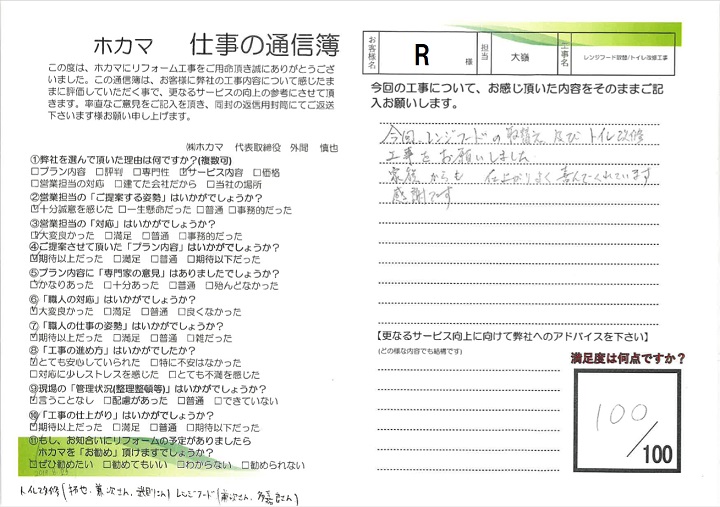 ホカマ 仕事の通信簿
この度は、ホカマにリフォーム工事をご用命頂き誠にありがとうござ
いました。この通信簿は、お客様に弊社の工事内容について感じたま
まに評価していただく事で、更なるサービスの向上の参考にさせて頂
きます。率直なご意見をご記入を頂き、同封の返信用封筒にてご返送
下さいます様お願い申し上げます。
㈱ホカマ 代表取締役 外間 慎也
①弊社を選んで頂いた理由は何ですか?(複数可)
□プラン内容 □評判 □専門性 ☑サービス内容 □価格
□営業担当の対応 □建てた会社だから □当社の場所
②営業担当の「ご提案する姿勢」はいかがでしょうか?
☑十分誠意を感じた □一生懸命だった □普通 □事務的だった
③営業担当の「対応」はいかがでしょうか?
☑大変良かった □満足 □普通 □事務的だった
④ご提案させて頂いた「プラン内容」はいかがでしょうか?
☑期待以上だった □満足 □普通 □期待以下だった
⑤プラン内容に「専門家の意見」はありましたでしょうか?
☑かなりあった □十分あった □普通 □殆んどなかった
⑥「職人の対応」はいかがでしょうか?
☑大変良かった □満足 □普通 □良くなかった
⑦「職人の仕事の姿勢」はいかがでしょうか?
☑期待以上だった □満足 □普通 □雑だった
⑧「工事の進め方」はいかがでしたか?
☑とても安心していられた □特に不安はなかった
□対応に少しストレスを感じた □とても不満を感じた
⑨現場の「管理状況(整理整頓等)」はいかがでしょうか?
☑言うことなし □配慮があった □普通 □できていない
⑩「工事の仕上がり」はいかがでしょうか?
☑期待以上だった □満足 □普通 □期待以下だった
⑪もし、お知合いにリフォームの予定がありましたら
ホカマを「お勧め」頂けますでしょうか?
☑ぜひ勧めたい □勧めてもいい □わからない □勧められない
お客様名 R 様 担当 大嶺 工事名 レンジフード取替/トイレ改修工事
今回の工事について、お感じ頂いた内容をそのままご記
入お願いします。
今回、レンジフードの取替え及びトイレ改修
工事をお願いしました
家族からも 仕上がりよく喜んでくれています
感謝です
【更なるサービス向上に向けて弊社へのアドバイスを下さい】
(どの様な内容でも結構です)
満足度は何点ですか?
100
/100